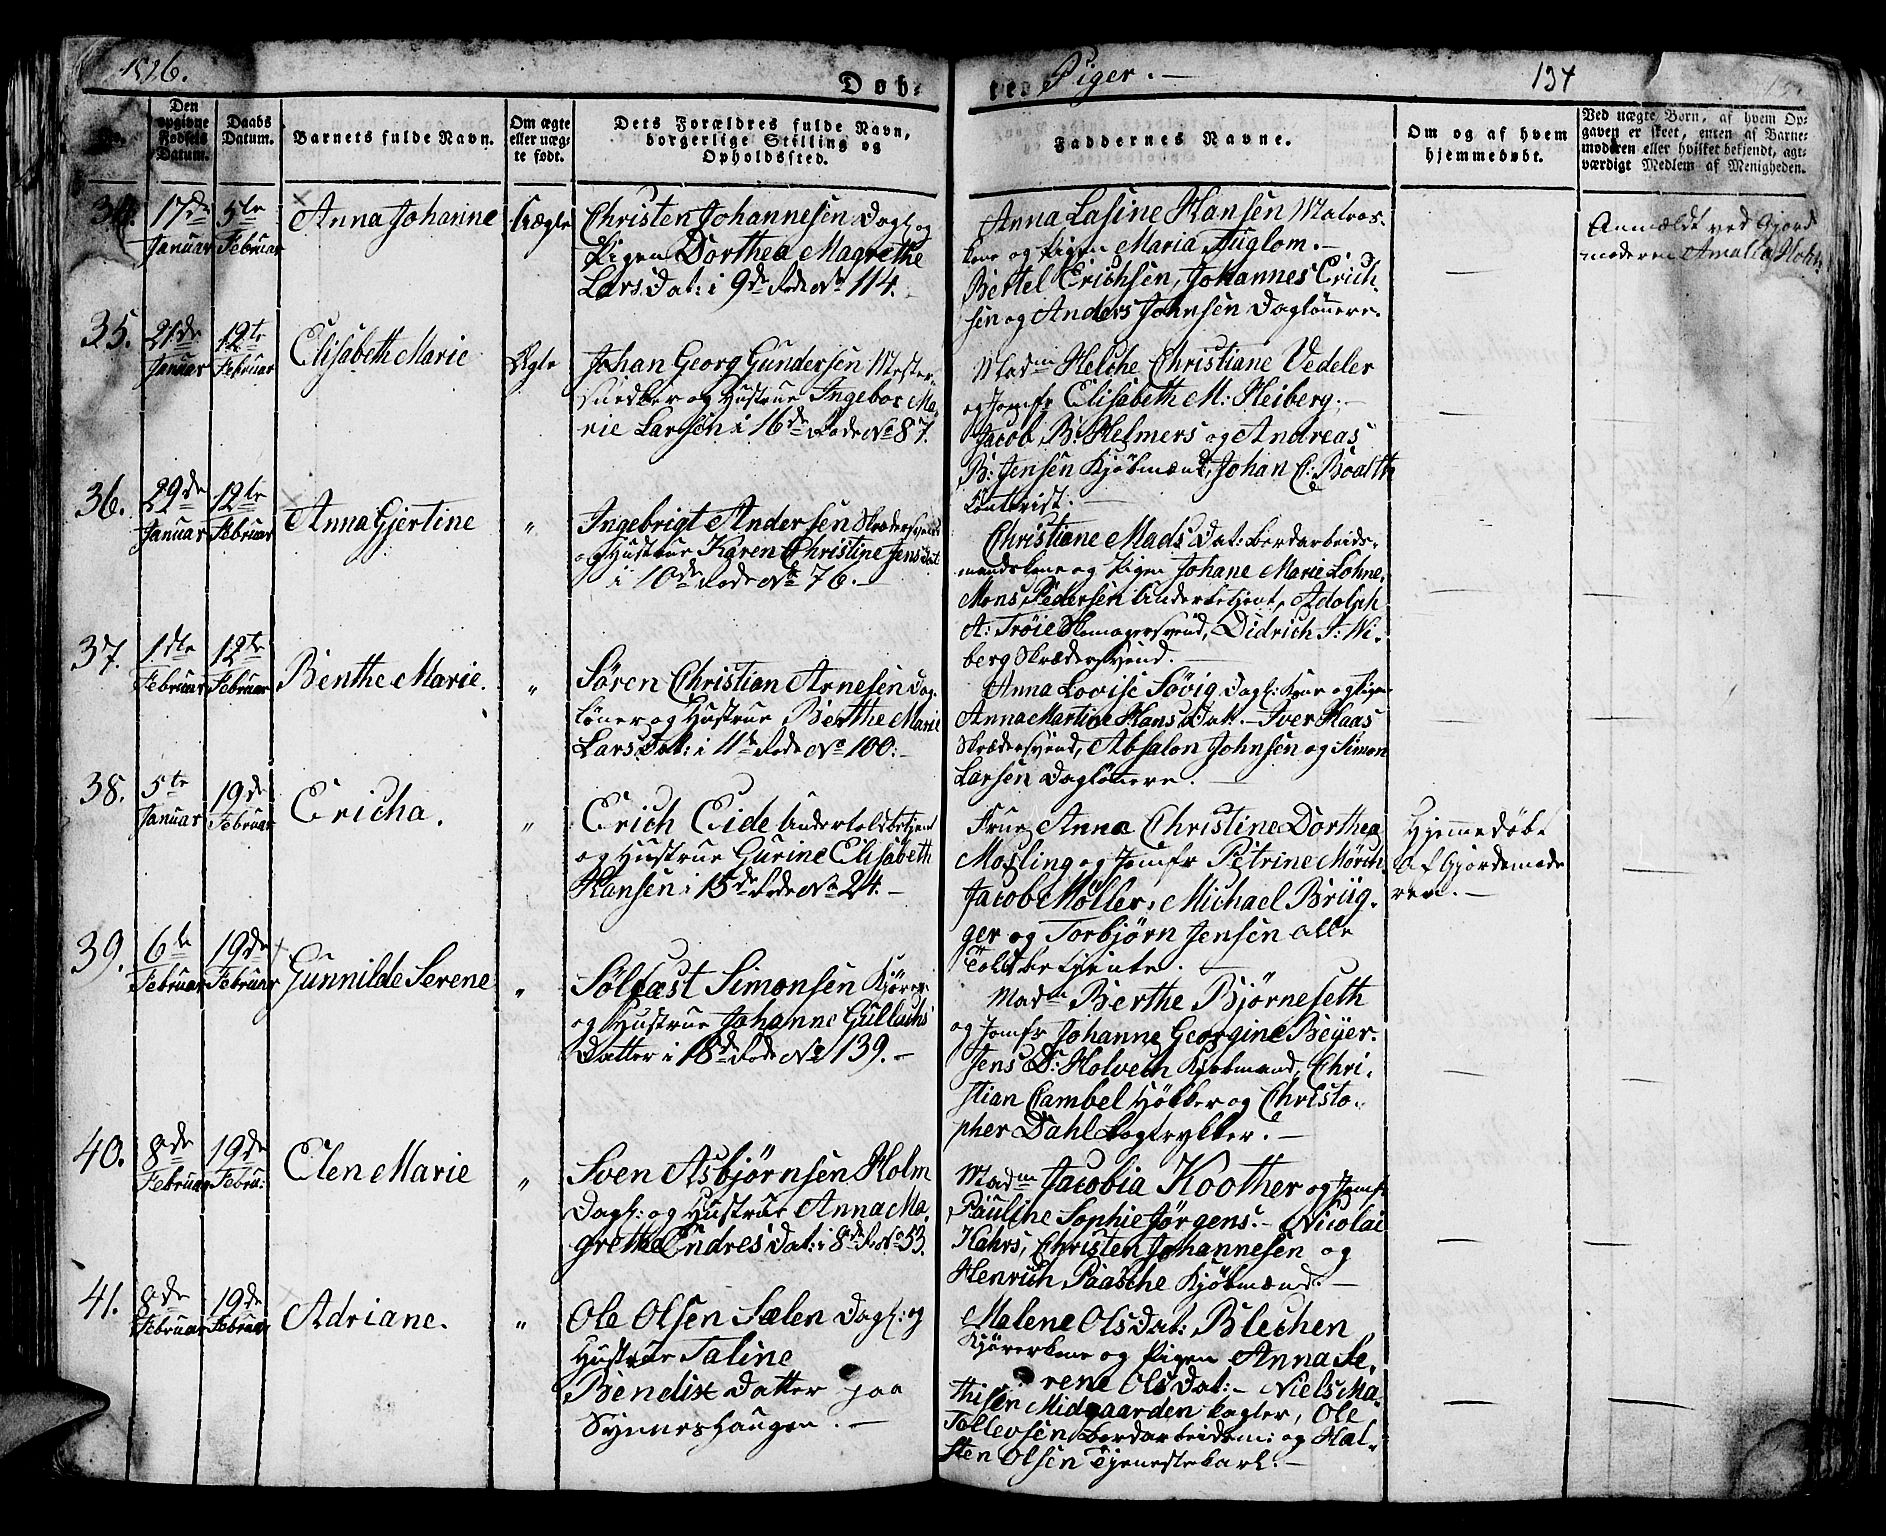 1826.
Døb-
te
Piger. —
134
No.
Den opgivne Fødsels Datum.
Daabs Datum.
Barnets fulde Navn.
Om ægte eller uægte født.
Dets Forældres fulde Navn, borgerlige Stilling og Opholdssted.
Faddernes Navne.
Om og af hvem hjemmedøbt.
Ved uægte Børn, af hvem Opgaven er skeet, enten af Barnemoderen eller hvilket bekjendt, agtværdigt Medlem af Menigheden.
34. 17de Januar 5te Februar Anna Johanne Uægte
Christen Johannesen Dagl. og
Pigen Dorthea Magrethe
Lars Dat: i 9de Rode No 114.
Anna Lasine Hansen Matros-
kone og Pigen Maria Fuglom. —
Bertel Erichsen, Johannes Erich-
sen og Anders Johnsen Daglønnere.
—
Anmældt ved Gjord
moderen Amalia Hohn.
35. 21de Januar 12te Februar Elisabeth Marie Ægte
Johan Georg Gundersen Mester-
snedker og Hustrue Ingebor Ma-
rie Larsen i 16de Rode No 87.
Madm Helche Christiane Vedeler
og Jomfr Elisabeth M: Heiberg. —
Jacob B: Helmers og Andreas
B: Jensen Kjøbmænd, Johan C: Boalth
Contorist. —
36. 29de Januar 12te Februar Anna Gjertine "
Ingebrigt Andersen Skrædersvend
og Hustrue Karen Christine Jens Dat
i 10de Rode No 76. —
Christiane Mads Dat: bordarbeids-
mandskone og Pigen Johane Marie Lohne.
Mons Pedersen Underbetjent, Adolph
A: Trøie Skomagersvend, Didrich J: Wi-
berg Skrædersvend. —
37. 1ste Februar 12te Februar Benthe Marie. "
Søren Christian Arnesen Dag-
løner og Hustrue Berthe Marie
Lars Dat: i 11te Rode No 100. —
Anna Lovise Søvig Dagl: Kone og Pigen
Anna Martine Hans Dat. — Iver Haas
Skrædersvend, Absalon Johnsen og Simon
Larsen Daglønnere. —
38. 5te Januar 19de Februar Ericha. "
Erich Eide Undertoldbetjent
og Hustrue Gurine Elisabeth
Hansen i 15de Rode No 24. —
Frue Anna Christine Dorthea
Mosling og Jomfr Petrine Mørch.
Jacob Møller, Michael Brüg-
ger og Torbjørn Jensen alle
Toldbetjente. —
Hjemmedøbt
af Gjordemode
ren. —
39. 6te Februar 19de Februar Gunnilde Serene "
Solfæst Simonsen Kjører
og Hustrue Johanne Gullachs
Datter i 18de Rode No 139. —
Madm Berthe Bjørneseth
og Jomfr Johanne Georgine Beyer.
Jens D: Holvech Kjøbmand, Chri-
stian Cambel Høkker og Christo-
pher Dahl Bogtrykker. —
40. 8de Februar 19de Febru: Elen Marie "
Sven Asbjørnsen Holm
Dagl: og Hustrue Anna Ma-
grethe Endres Dat: i 8de R: No 53.
Madm Jacobia Koother og Jomfr
Pauline Sophie Jørgens. — Nicolai
Kahrs, Christen Johannesen og
Henrich Paasche Kjøbmænd. —
41. 8de Februar 19de Februar Adriane. "
Ole Olsen Sælen Dagl: og
Hustrue Taline
Bendix Datter paa
Synneshaugen. —
Malene Ols Dat: Blechen
Kjørerkone og Pigen Anna Se-
rene Ols Dat: — Niels Ma-
thisen Midgaarden Bagler, Ole
Tollevsen bordarbeidsm: og Hal-
sten Olsen Tjenestekarl. —